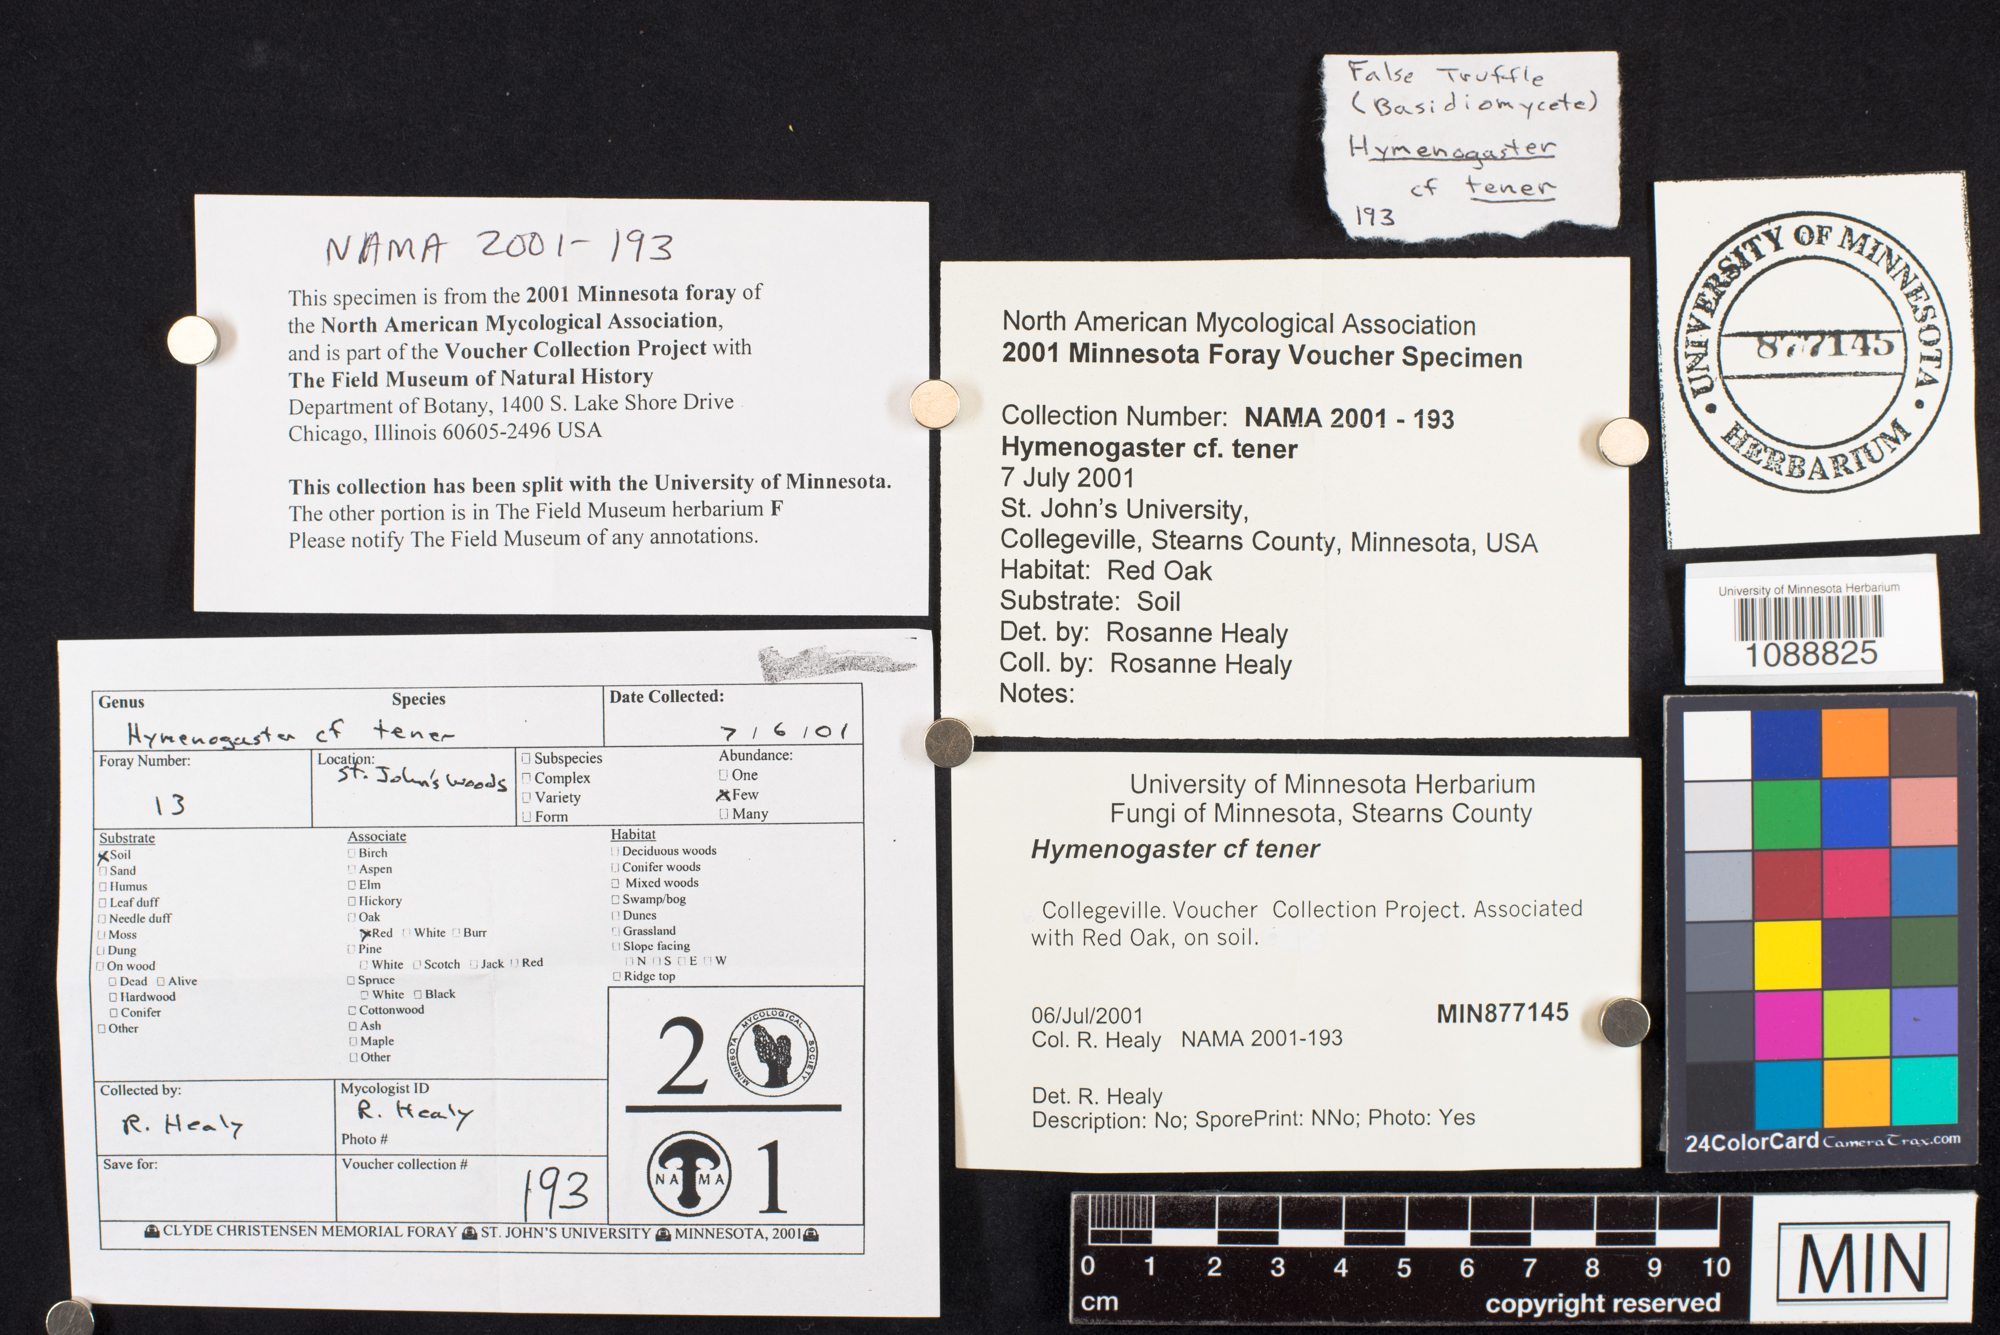 False Truffle
(Basidiomycete)
Hymenogaster
cf tener
193
NAMA 2001-193
This specimen is from the 2001 Minnesota foray of
the North American Mycological Association,
and is part of the Voucher Collection Project with
The Field Museum of Natural History
Department of Botany, 1400 S. Lake Shore Drive
Chicago, Illinois 60605-2496 USA
This collection has been split with the University of Minnesota.
The other portion is in The Field Museum herbarium F
Please notify The Field Museum of any annotations.
North American Mycological Association
2001 Minnesota Foray Voucher Specimen
Collection Number: NAMA 2001 - 193
Hymenogaster cf. tener
7 July 2001
St. John's University,
Collegeville, Stearns County, Minnesota, USA
Habitat: Red Oak
Substrate: Soil
Det. by: Rosanne Healy
Coll. by: Rosanne Healy
Notes:
UNIVERSITY OF MINNESOTA
877145
HERBARIUM
University of Minnesota Herbarium
1088825
Genus Species Date Collected:
Hymenogaster cf tener 7/6/01
Foray Number: Location:
13 St. John's Woods
Subspecies
Complex
Variety
Form
Abundance:
One
Few
Many
Substrate
Soil
Sand
Humus
Leaf duff
Needle duff
Moss
Dung
On wood
Dead Alive
Hardwood
Conifer
Other
Associate
Birch
Aspen
Elm
Hickory
Oak
Red White Burr
Pine
White Scotch Jack Red
Spruce
White Black
Cottonwood
Ash
Maple
Other
Habitat
Deciduous woods
Conifer woods
Mixed woods
Swamp/bog
Dunes
Grassland
Slope facing
N S E W
Ridge top
2
MINNESOTA MYCOLOGICAL SOCIETY
NAMA
1
Collected by:
R. Healy
Mycologist ID
R. Healy
Photo #
Save for:
Voucher collection #
193
CLYDE CHRISTENSEN MEMORIAL FORAY ST. JOHN'S UNIVERSITY MINNESOTA, 2001
University of Minnesota Herbarium
Fungi of Minnesota, Stearns County
Hymenogaster cf tener
Collegeville. Voucher Collection Project. Associated
with Red Oak, on soil.
06/Jul/2001 MIN877145
Col. R. Healy NAMA 2001-193
Det. R. Healy
Description: No; SporePrint: NNo; Photo: Yes
24ColorCard CameraTrax.com
0 1 2 3 4 5 6 7 8 9 10
cm copyright reserved
MIN